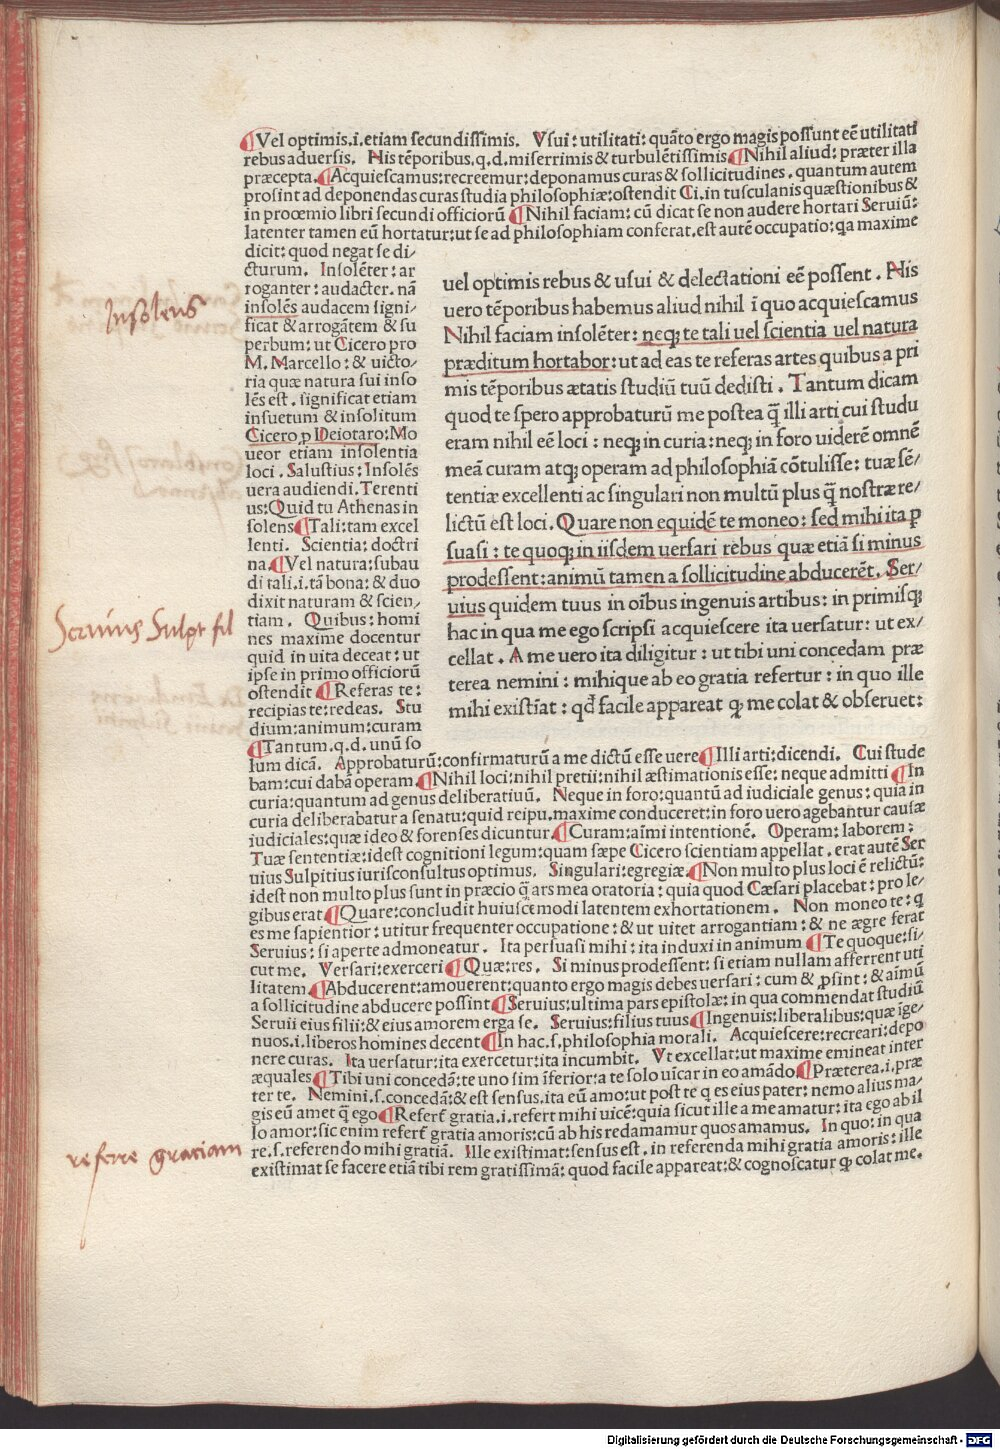 ¶Vel optimis.i.etiam secundissimis. Vsui: utilitati: quāto ergo magis possunt eē utilitati
rebus aduersis. His tēporibus.q.d.miserrimis & turbulētissimis ¶Nihil aliud: præter illa
præcepta. ¶Acquiescamus:recreemur:deponamus curas & sollicitudines. quantum autem
prosint ad deponendas curas studia philosophiæ:ostendit Ci.in tusculanis quæstionibus &
in prooemio libri secundi officiorū ¶Nihil faciam: cū dicat se non audere hortari Seruiū:
latenter tamen eū hortatur:ut se ad philosophiam conferat.est autē occupatio:qa maxime
dicit: quod negat se di/
cturum. Insolēter: ar
roganter: audacter. nā
insolēs audacem signi/
ficat & arrogātem & su
perbum: ut Cicero pro
M. Marcello: & uicto/
ria quæ natura sui inso
lēs est. significat etiam
insuetum & insolitum
Cicero p Deiotaro: Mo
ueor etiam insolentia
loci. Salustius: Insolēs
uera audiendi. Terenti
us: Quid tu Athenas in
solens ¶Tali:tam excel
lenti. Scientia: doctri
na. ¶Vel natura:subau
di tali.i.tā bona: & duo
dixit naturam & scien/
tiam. Quibus: homi
nes maxime docentur
quid in uita deceat: ut
ipse in primo officiorū
ostendit ¶Referas te:
recipias te:redeas. Stu
dium:animum:curam
¶Tantum.q.d. unū so
uel optimis rebus & usui & delectationi eē possent. His
uero tēporibus habemus aliud nihil ī quo acquiescamus
Nihil faciam insolēter: neq; te tali uel scientia uel natura
præditum hortabor: ut ad eas te referas artes quibus a pri
mis tēporibus ætatis studiū tuū dedisti. Tantum dicam
quod te spero approbaturū me postea q̄ illi arti cui studu
eram nihil eē loci: neq; in curia: neq; in foro uiderē omnē
meā curam atq; operam ad philosophiā cōtulisse: tuæ sē/
tentiæ excellenti ac singulari non multū plus q̄ nostræ re/
lictū est loci. Quare non equidē te moneo: sed mihi ita p
suasi: te quoq; in iisdem uersari rebus quæ etiā si minus
prodessent: animū tamen a sollicitudine abducerēt. Ser/
uius quidem tuus in oībus ingenuis artibus: in primisq;
hac in qua me ego scripsi acquiescere ita uersatur: ut ex/
cellat. A me uero ita diligitur: ut tibi uni concedam præ
terea nemini: mihique ab eo gratia refertur: in quo ille
mihi existīat: qd facile appareat q; me colat & obseruet:
lum dicā. Approbaturū:confirmaturū a me dictū esse uere ¶Illi arti:dicendi. Cui stude
bam:cui dabā operam. ¶Nihil loci:nihil pretii:nihil æstimationis esse: neque admitti ¶In
curia:quantum ad genus deliberatiuū. Neque in foro:quantū ad iudiciale genus: quia in
curia deliberabatur a senatu:quid reipu.maxime conduceret:in foro uero agebantur causæ
iudiciales:quæ ideo & forenses dicuntur. ¶Curam:aīmi intentionē. Operam: laborem:
Tuæ sententiæ:idest cognitioni legum:quam sæpe Cicero scientiam appellat. erat autē Ser
uius Sulpitius iurisconsultus optimus. Singulari:egregiæ. ¶Non multo plus loci ē relictū:
idest non multo plus sunt in præcio q̄ ars mea oratoria: quia quod Cæsari placebat: pro le/
gibus erat ¶Quare:concludit huiuscemodi latentem exhortationem. Non moneo te: q
es me sapientior: utitur frequenter occupatione: & ut uitet arrogantiam: & ne ægre ferat
Seruius: si aperte admoneatur. Ita persuasi mihi: ita induxi in animum ¶Te quoque: si/
cut me. Versari:exerceri ¶Quæ:res. Si minus prodessent: si etiam nullam afferrent uti
litatem. ¶Abducerent:amouerent:quanto ergo magis debes uersari: cum & psint: & aīmū
a sollicitudine abducere possint ¶Seruius:ultima pars epistolæ: in qua commendat studiū
Seruii eius filii:& eius amorem erga se. Seruius:filius tuus ¶Ingenuis:liberalibus:quæ īge/
nuos.i.liberos homines decent ¶In hac.s.philosophia morali. Acquiescere:recreari:depo
nere curas. Ita uersatur:ita exercetur:ita incumbit. Vt excellat:ut maxime emineat inter
æquales ¶Tibi uni concedā:te uno sim īferior:a te solo uīcar in eo amādo ¶Præterea.i.præ
ter te. Nemini.s.concedā:& est sensus.ita eū amo:ut post te q es eius pater: nemo alius ma/
gis eū amet q̄ ego ¶Refert̄ gratia.i.refert mihi uicē:quia sicut ille a me amatur: ita ego ab il
lo amor:sic enim refert̄ gratia amoris:cū ab his redamamur quos amamus. In quo: in qua
re.s.referendo mihi gratiā. Ille existimat:sensus est.in referenda mihi gratia amoris: ille
existimat se facere etiā tibi rem gratissimā: quod facile appareat:& cognoscatur q; colat me.
Insolens
Seruius Sulpt fil
referre gratiam
Digitalisierung gefördert durch die Deutsche Forschungsgemeinschaft - DFG